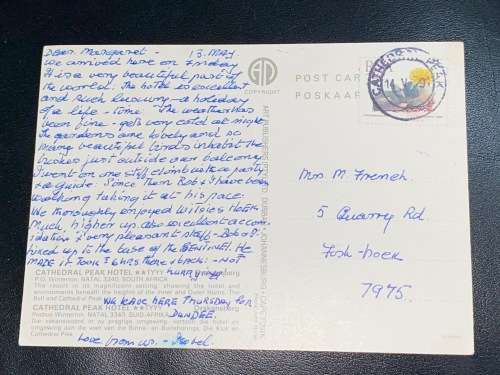 Dear Margaret - 13. MAY
We arrived here on Friday
It is a very beautiful part of
the world. The hotel is excellent
and such luxury - a holiday
of a life-time. The weather has
been fine - gets very cold at night
The gardens are lovely and so
many beautiful birds inhabit the
bushes just outside our balcony
I went on one stiff climb with a party
& a guide. Since then Rob & I have been
walking taking it at his pace.
We thoroughly enjoyed Witsies Hotel
Much higher up. also excellent accom-
idation & very pleasant staff - Rob & I
hired up to the base of the SENTINEL. He
MADE it Took 6 HRS there & back: - NOT
HURRYING
CATHEDRAL PEAK HOTEL ★★TYYY Drakensberg
P.O. Winterton, NATAL 3340, SOUTH AFRICA
The resort in its magnificent setting, showing the hotel and
environments beneath the heights of the Inner and Outer Horns, The
Bell and Cathedral Peak
CATHEDRAL PEAK HOTEL ★★TYYY Drakensberg
Posbus Winterton, NATAL 3340, SUID-AFRIKA
WE LEAVE HERE THURSDAY FOR
DUNDEE.
Love from us. - Isobel.
COPYRIGHT
POST CARD
POSKAART
CATHEDRAL PEAK
Mrs M French
5 Quarry Rd.
Fish hoek
7975.